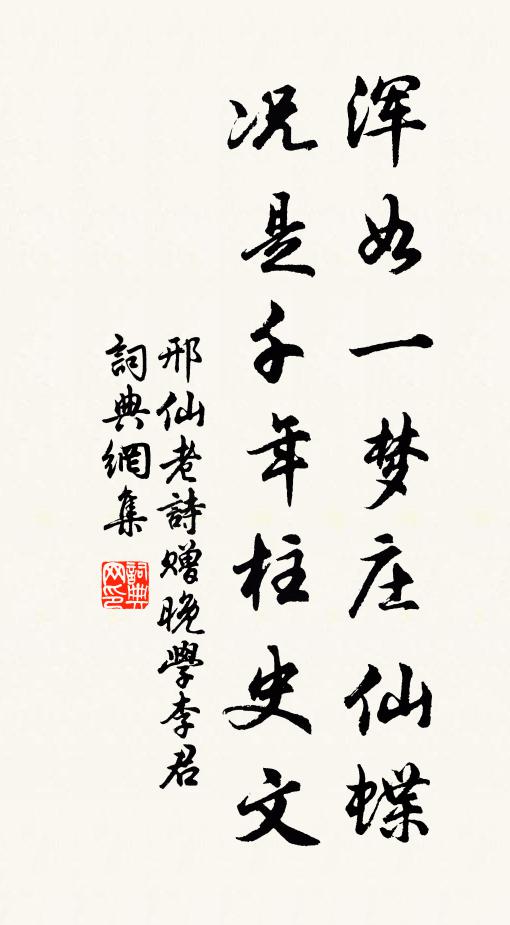 浑如一梦庄仙蝶
况是千年柱史文
邢仙老詩赠晚學李君
詞典網集
詞典网印